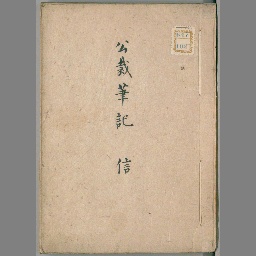 公裁筆記　信